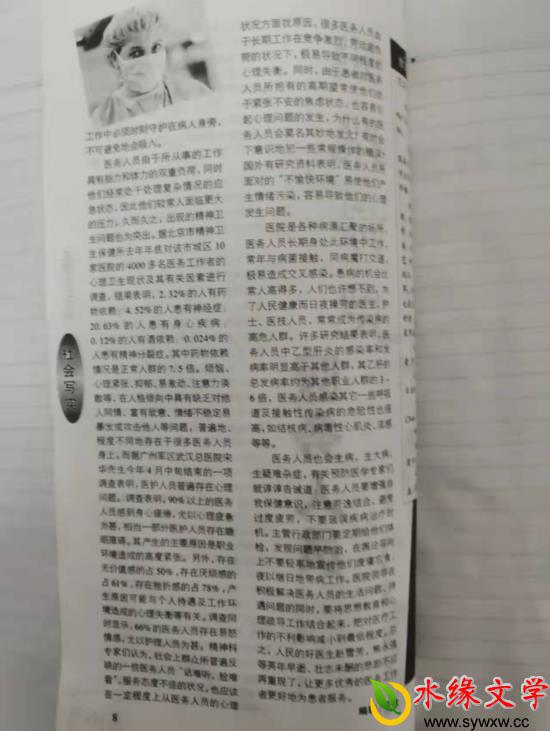 工作中必须时刻守护在病人身旁，
不可避免地会吸入。
医务人员由于所从事的工作
具有脑力和体力的双重负荷，同时
他们经常处于处理复杂情况的应
急状态，因此他们较常人面临更大
的压力，久而久之，出现的精神卫
生问题也为突出。据北京市精神卫
生保健所去年年底对该市城区10
家医院的4000多名医务工作者的
心理卫生现状及其有关因素进行
调查，结果表明，2.32%的人有药
物依赖；4.52%的人患有神经症；
20.63%的人患有身心疾病；
0.12%的人有酒依赖；0.024%的
人患有精神分裂症。其中药物依赖
情况是正常人群的7.5倍。烦恼、
心理紧张、抑郁、易激动、注意力涣
散等，在人格倾向中具有缺乏对他
人同情、富有敌意、情绪不稳定易
暴发或攻击他人等问题，普遍地、
程度不同地存在于很多医务人员
身上。而据广州军区武汉总医院宋
华先生今年4月中旬结束的一项
调查表明，医护人员普遍存在心理
问题。调查表明，90%以上的医务
人员感到身心疲惫，尤以心理疲惫
为甚，相当一部分医护人员存在睡
眠障碍。其产生的主要原因是职业
环境造成的高度紧张。另外，存在
无价值感的占50%，存在厌烦感的
占61%，存在挫折感的占78%，产
生原因可能与个人待遇及工作环
境造成的心理失衡等有关。调查同
时显示，66%的医务人员存在易怒
情感，尤以护理人员为甚。精神科
专家们认为，社会上群众所普遍反
映的一些医务人员“话难听，脸难
看”，服务态度不佳的状况，也应该
在一定程度上从医务人员的心理
8
社会写实
状况方面找原因，很多医务人员由
于长期工作在竞争激烈、劳动超负
荷的状况下，极易导致不同程度的
心理失衡。同时，由于患者对医务
人员所抱有的高期望常使他们处
于紧张不安的焦虑状态，也容易引
起心理问题的发生，为什么有的医
务人员会莫名其妙地发火？有时会
下意识地犯一些常规操作的错误？
国外有研究资料表明，医务人员所
面对的“不愉快环境”易使他们产
生情绪污染，容易导致他们的心理
发生问题。
医院是各种病源汇聚的场所，
医务人员长期身处此环境中工作，
常年与病菌接触，同病魔打交道，
极易造成交叉感染。患病的机会比
常人高得多，人们也许想不到，为
了人民健康而日夜操劳的医生、护
士、医技人员，常常成为传染病的
高危人群。许多研究结果表明，医
务人员中乙型肝炎的感染率和发
病率明显高于其他人群，其乙肝的
总发病率约为其他职业人群的3-
6倍，医务人员感染其它一些呼吸
道及接触性传染病的危险性也很
高，如结核病、病毒性心肌炎、流感
等等。
医务人员也会生病，生大病，
生疑难杂症，有关预防医学专家们
就谆谆告诫道，医务人员要增强自
我保健意识，注意劳逸结合，避免
过度疲劳，不要延误疾病治疗时
机。主管行政部门要定期给他们体
检，发现问题早防治，在舆论导向
上不要轻率地宣传他们废寝忘食、
夜以继日地带病工作。医院领导在
积极解决医务人员的生活问题、待
遇问题的同时，要将思想教育和心
理疏导工作结合起来，把对医疗工
作的不利影响减小到最低程度。总
之，人民的好医生赵雪芳、熊永强
等英年早逝、壮志未酬的悲剧不应
再重现了，让更多优秀的医务工作
者更好地为患者服务。
编辑
水缘文学
www.sywxw.cc